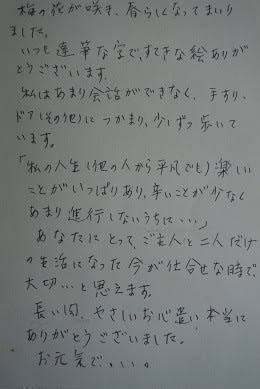 梅の花が咲き、春らしくなってまいり
ました。
いつも達筆な字で、すてきな絵ありが
とうございます。
私はあまり会話ができなく、手すり、
ドア(その他)につかまり、少しずつ歩いて
います。
「私の人生(他の人から平凡でも)楽しい
ことがいっぱいあり、辛いことが少なく
あまり進行しないうちに・・・」
あなたにとって、ご主人と二人だけ
の生活になった今が仕合せな時で、
大切・・と思えます。
長い間、やさしいお心遣い本当に
ありがとうございました。
お元気で・・・。